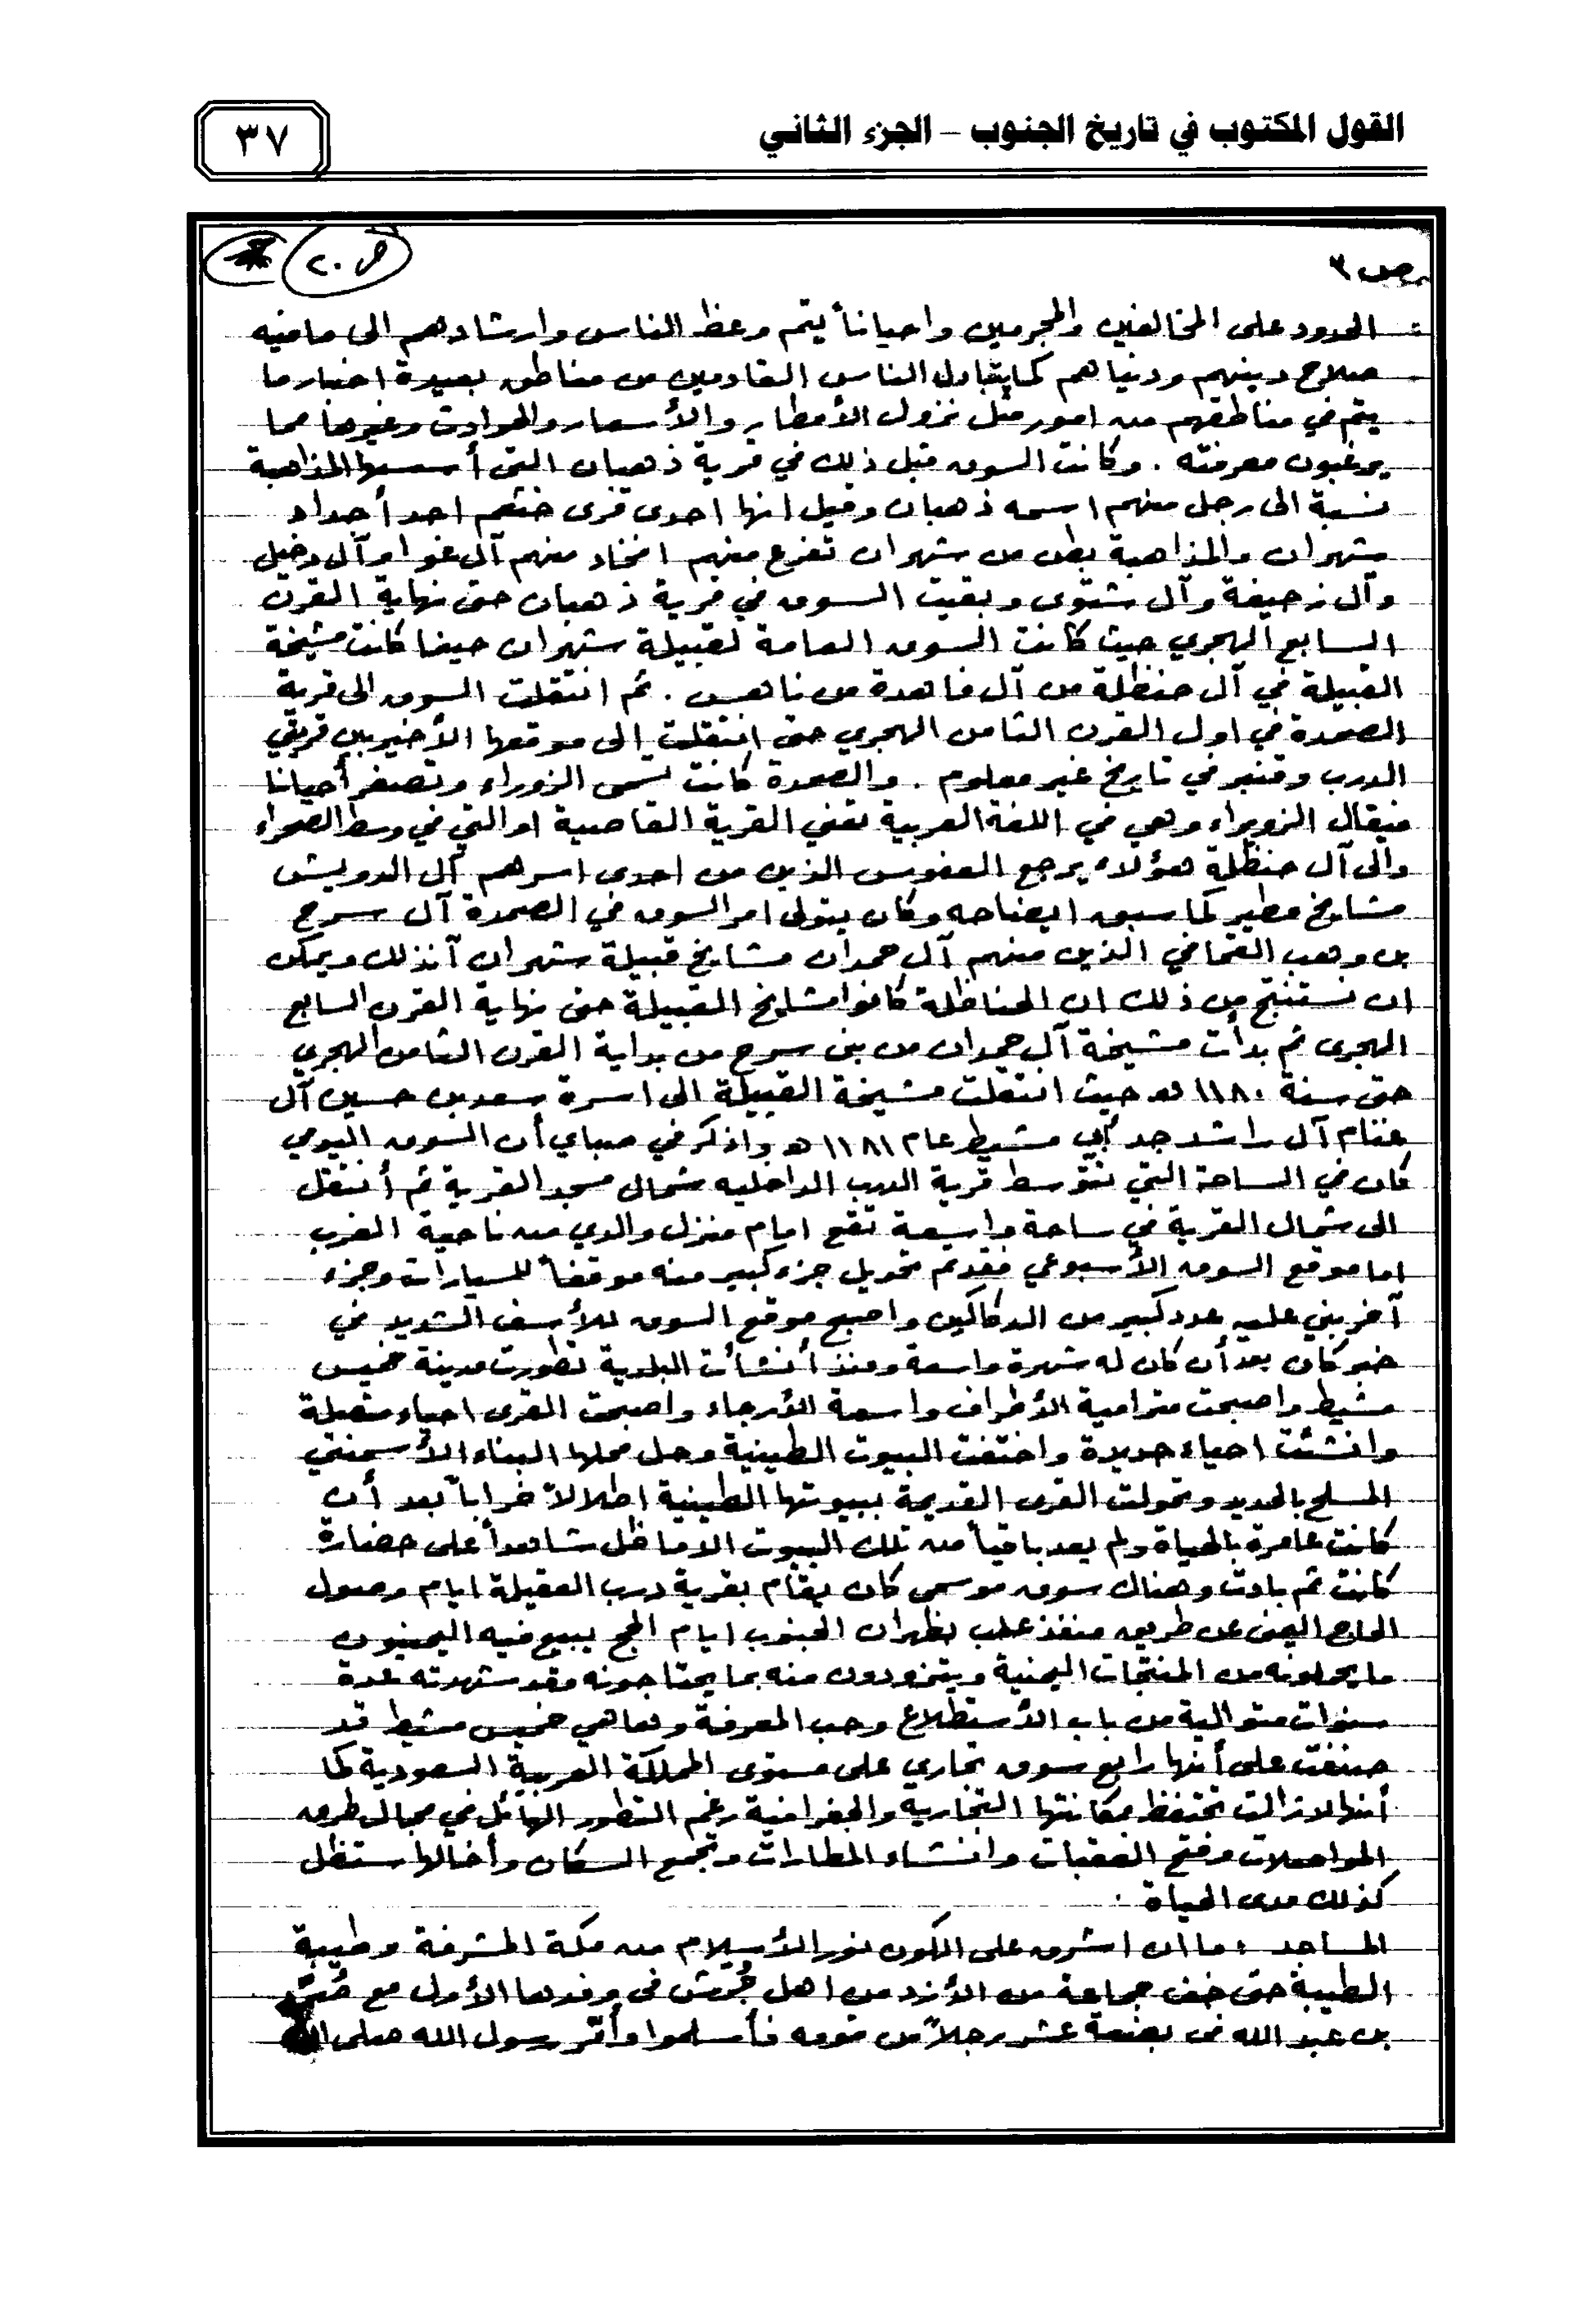 القول المكتوب في تاريخ الجنوب – الجزء الثاني
٣٧
ص ٣
ص ٢٠
الحدود على المخالفين والمجرمين واحياناً يتم وعظ الناس وارشادهم الى مافيه
صلاح دينهم ودنياهم كما يتبادل الناس القادمين من مناطق بعيدة اخبار ما
يتم في مناطقهم من امور مثل نزول الأمطار والأسعار والحوادث وغيرها مما
يرغبون معرفته . وكانت السوق قبل ذلك في قرية ذهبان التي أسسها المذاهبة
نسبة الى رجل منهم اسمه ذهبان وقيل انها احدى قرى خثعم احد أجداد
شهران والمذاهبة بطن من شهران تفرع منهم افخاذ منهم آل غوا وآل دخيل
وآل زحيفة وآل شتوى وبقيت السوق في قرية ذهبان حتى نهاية القرن
السابع الهجري حيث كانت السوق العامة لقبيلة شهران حينما كانت مشيخة
القبيلة في آل حنظلة من آل فاهدة من ناهس . ثم انتقلت السوق الى قرية
الصمدة في اول القرن الثامن الهجري حتى انتقلت الى موقعها الأخير بين قريتي
الدرب وقنبر في تاريخ غير معلوم . والصمدة كانت تسمى الزوراء وتصغر أحيانا
فيقال الزويراء وهي في اللغة العربية تعني القرية القاصية او التي في وسط الصحراء
والى آل حنظلة هؤلاء يرجع العفوس الذين من احدى اسرهم آل الدويش
مشايخ مطير كما سبق ايضاحه وكان يتولى امر السوق في الصمدة آل سرح
بن وهب القحافي الذين منهم آل حمدان مشايخ قبيلة شهران آنذلك ويمكن
ان نستنتج من ذلك ان الحناظلة كانوا مشايخ القبيلة حتى نهاية القرن السابع
الهجرى ثم بدأت مشيخة آل حمدان من بني سرح من بداية القرن الثامن الهجري
حتى سنة ١١٨٠ هـ حيث انتقلت مشيخة القبيلة الى اسرة سعد بن حسين آل
غنام آل راشد جد أبي مشيط عام ١١٨١ هـ واذكر في صباي أن السوق اليومي
كان في الساحة التي تتوسط قرية الدرب الداخليه شمال مسجد القرية ثم أنتقل
الى شمال القرية في ساحة واسعة تقع امام منزل والدي من ناحية الغرب
اما موقع السوق الأسبوعي فقد تم تحويل جزء كبير منه موقفاً للسيارات وجزء
آخر بني عليه عدد كبير من الدكاكين واصبح موقع السوق للأسف الشديد في
خبر كان بعد أن كان له شهرة واسعة ومنذ أنشأت البلدية تطورت مدينة خميس
مشيط واصبحت مترامية الأطراف واسعة الأرجاء واصبحت القرى احياء متصلة
وانشئت احياء جديدة واختفت البيوت الطينية وحل محلها البناء الأسمنتي
المسلح بالحديد وتحولت القرى القديمة ببيوتها الطينية اطلالاً خراباً بعد أن
كانت عامرة بالحياة ولم يعد باقياً من تلك البيوت الا ما ظل شاهداً على حضارة
كانت ثم بادت وهناك سوق موسمى كان يقام بقرية درب العقيلة ايام وصول
الحاج اليمني عن طريق منفذ علب بظهران الجنوب ايام الحج يبيع فيه اليمنيون
ما يحملونه من المنتجات اليمنية ويتزودون منه بما يحتاجونه وقد شهدته لمدة
سنوات متوالية من باب الأستطلاع وحب المعرفة وهاهي خميس مشيط قد
صنفت على أنها رابع سوق تجاري على مستوى المملكة العربية السعودية كما
أنها لازالت تحتفظ بمكانتها التجاريه والجغرافية رغم التطور الهائل في مجال طرق
المواصلات وفتح العقبات وانشاء المطارات وتجمع السكان وأخالها ستظل
كذلك مدى الحياة .
المساجد : ما ان اشرق على الكون نور الأسلام من مكة المشرفة وطيبة
الطيبة حتى خف جماعة من الأزد من اهل جُرش في وفدها الأول مع صُرَد
بن عبد الله في بضعة عشر رجلاً من قومه فأسلموا وأمّر رسول الله صلى الله